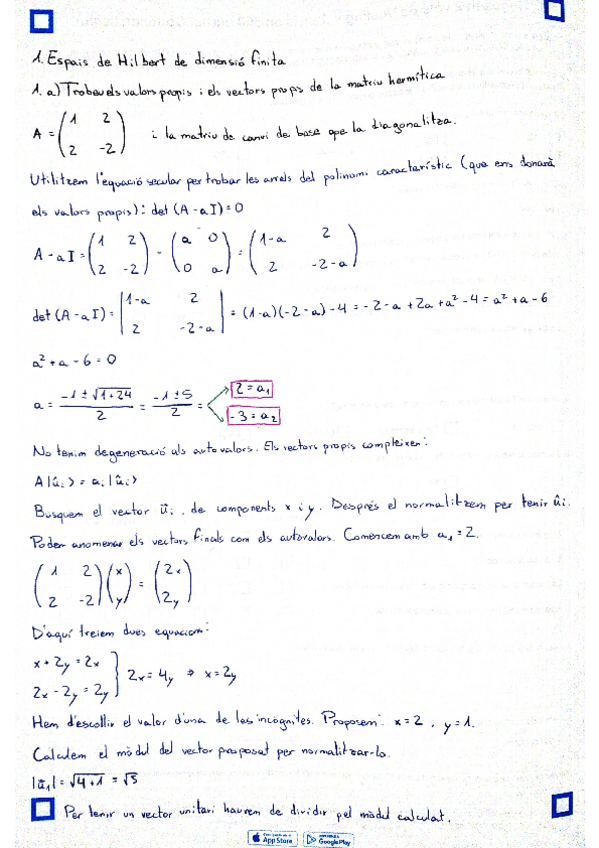 1. Espais de Hilbert de dimensió finita
1. a) Trobeu els valors propis i els vectors propis de la matriu hermítica
A = (1 2; 2 -2) i la matriu de canvi de base que la diagonalitza.
Utilitzem l'equació secular per trobar les arrels del polinomi característic (que ens donarà
els valors propis): det (A - aI) = 0
A - aI = (1 2; 2 -2) - (a 0; 0 a) = (1-a 2; 2 -2-a)
det (A - aI) = |1-a 2; 2 -2-a| = (1-a)(-2-a) - 4 = -2 - a + 2a + a² - 4 = a² + a - 6
a² + a - 6 = 0
a = (-1 ± √(1+24))/2 = (-1 ± 5)/2 = 2 = a₁
-3 = a₂
No tenim degeneració als autovalors. Els vectors propis compleixen:
A|ûᵢ> = aᵢ|ûᵢ>
Busquem el vector ūᵢ, de components x i y. Després el normalitzem per tenir ûᵢ.
Podem anomenar els vectors finals com els autovalors. Comencem amb a₁ = 2.
(1 2; 2 -2)(x; y) = (2x; 2y)
D'aquí treiem dues equacions:
x + 2y = 2x
2x - 2y = 2y } 2x = 4y ⇒ x = 2y
Hem d'escollir el valor d'una de les incògnites. Proposem: x = 2, y = 1.
Calculem el mòdul del vector proposat per normalitzar-lo.
|ū₁| = √(4+1) = √5
Per tenir un vector unitari haurem de dividir pel mòdul calculat.
App Store Google Play